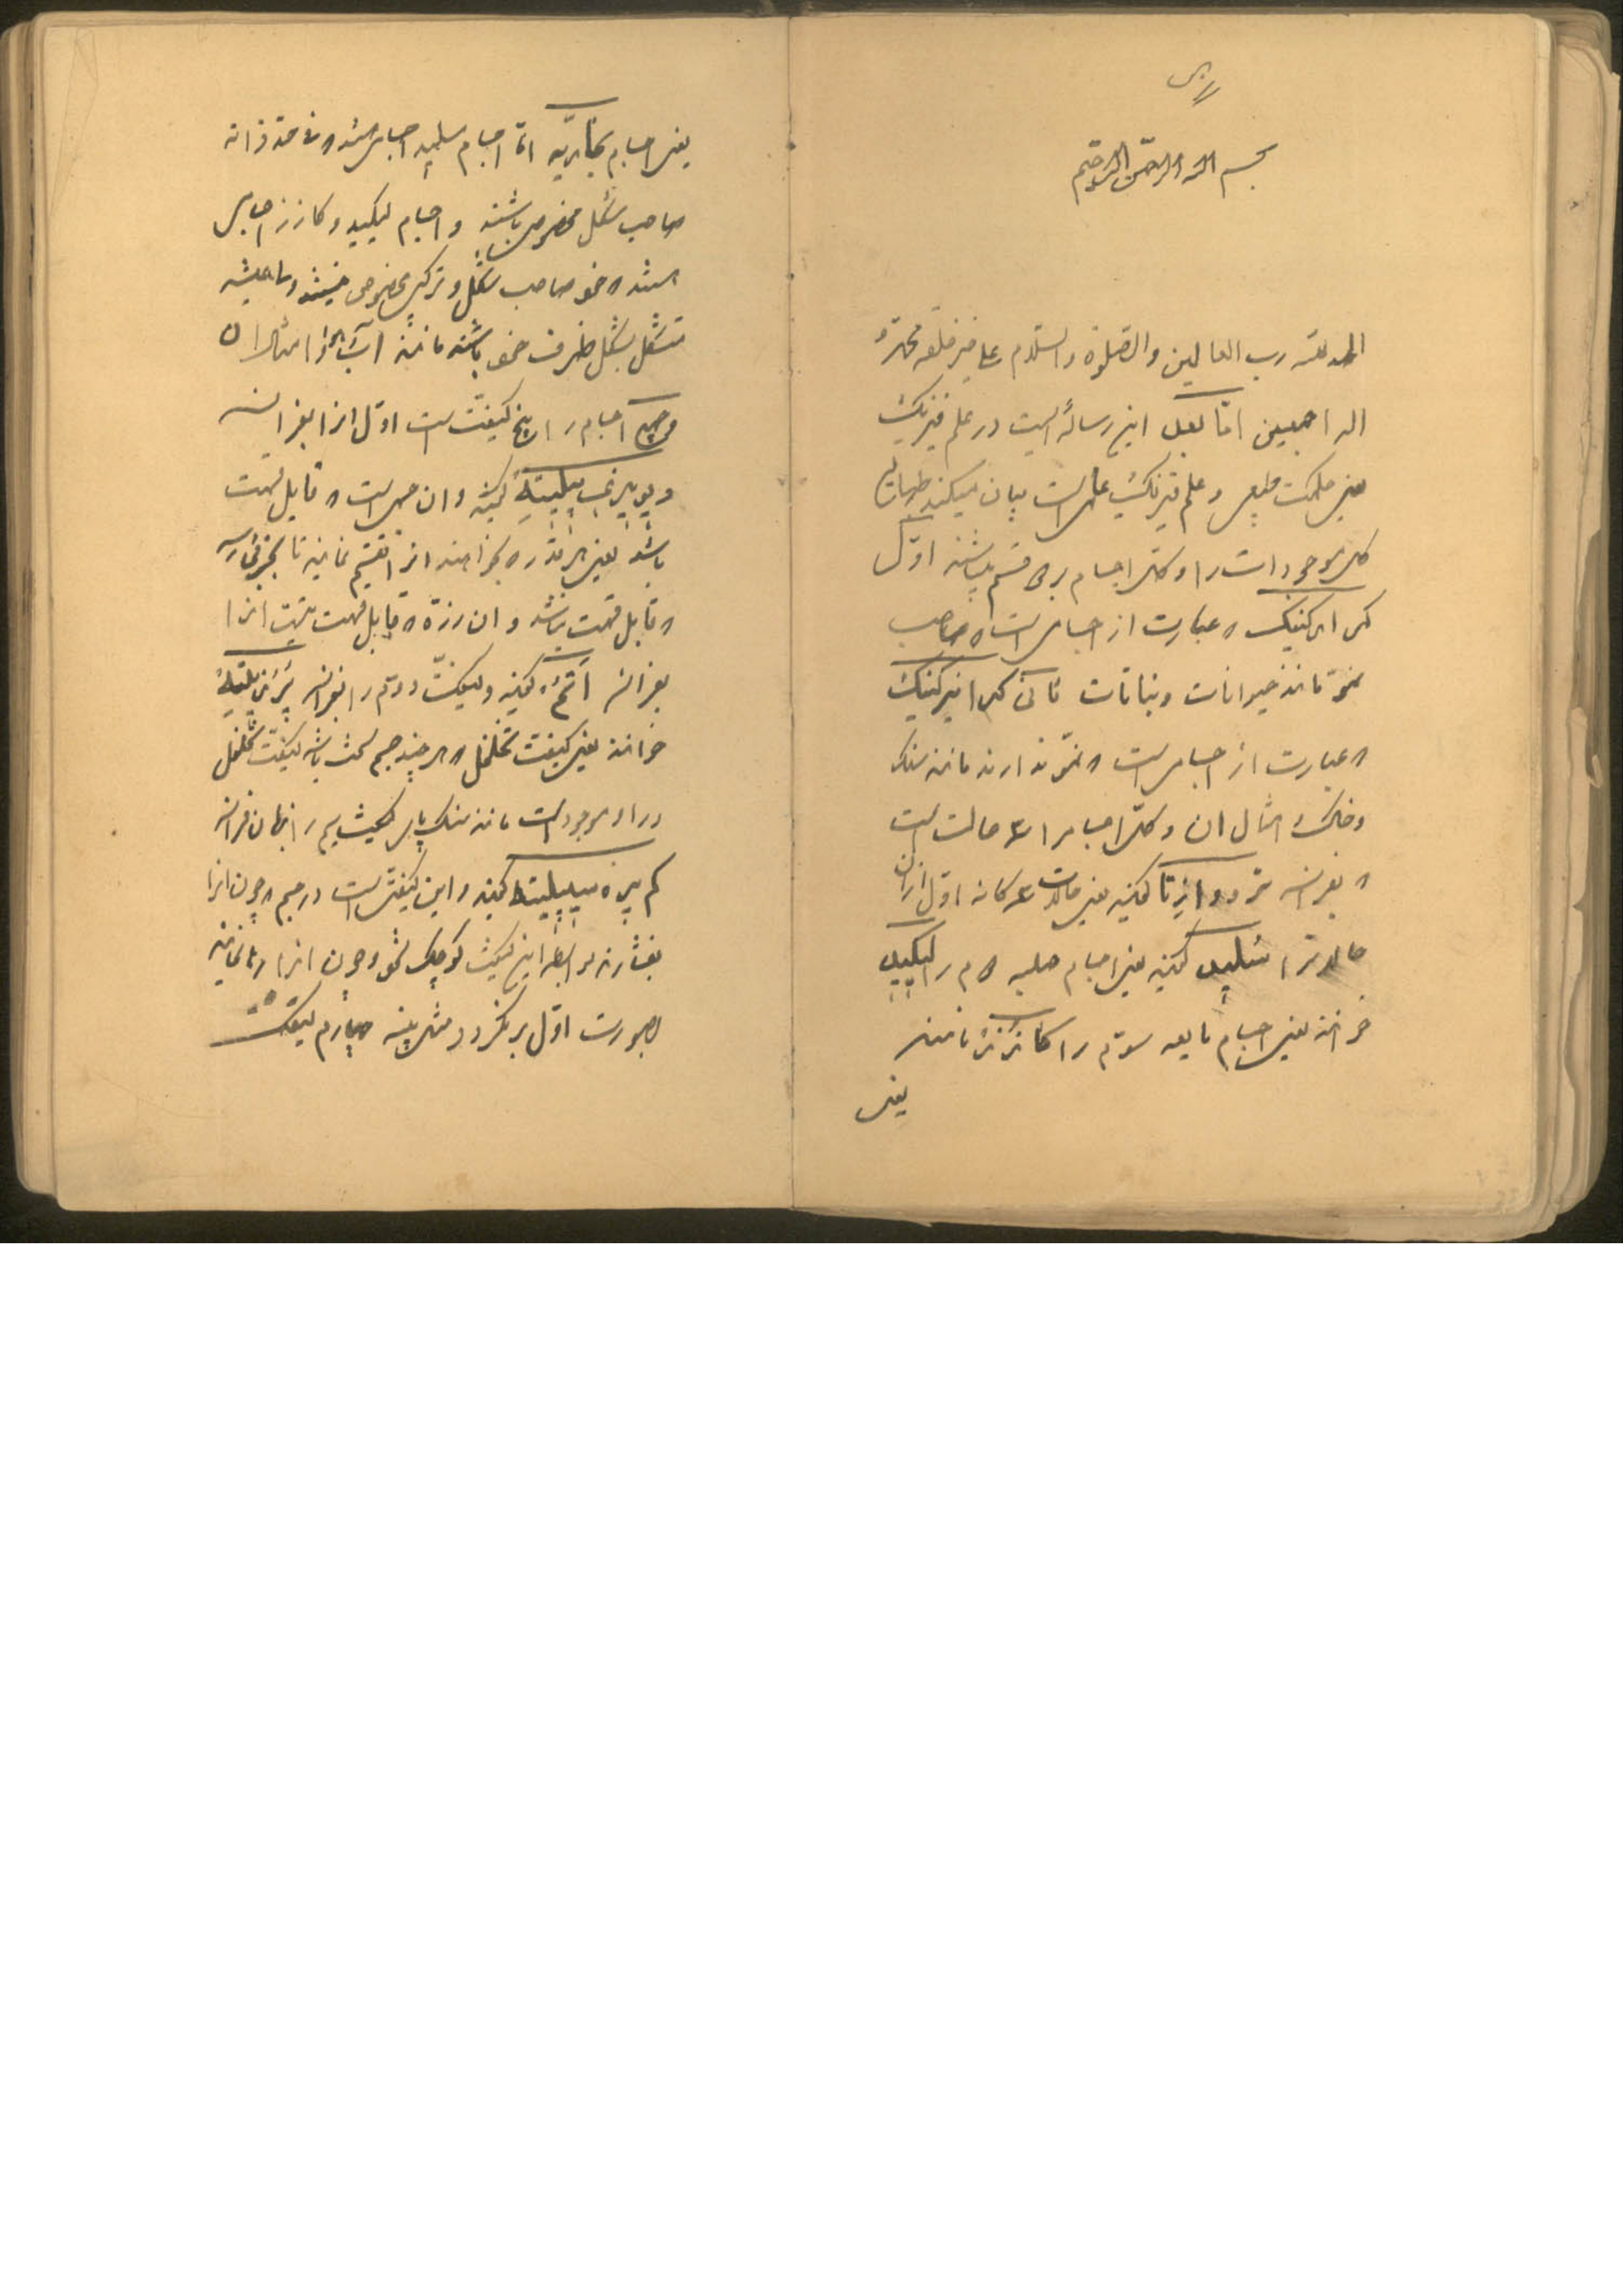 بسم الله الرحمن الرحیم
الحمد لله رب العالمین والصلوة والسلام علی خیر خلقه محمد و
اله اجمعین اما بعد این رساله ایست در علم فیزیک
یعنی حکمت طبیعی و علم فیزیک علمی است بیان میکند
کل موجودات را و کلیه اجسام بر دو قسم میباشند اول
کر ارکنیک که عبارت از اجسامی است که صاحب
نمو مانند حیوانات و نباتات ثانی کر انیرکنیک
که عبارت از اجسامی است که نمو ندارند مانند سنک
و خاک و امثال ان و کلیه اجسام را سه حالت است
که بفرانسه تروا ازتا کویند یعنی حالات سه کانه اول از ان
حالات را سلید کویند یعنی اجسام صلبه دوم را لیکید
خوانند یعنی اجسام مایعه سوم را کازز نامند
یعنی
یعنی اجسام بخاریه اما اجسام سلید اجسامی هستند که فی حد ذاته
صاحب شکل مخصوص باشند و اجسام لیکید و کازز اجسامی
هستند که خود صاحب شکل و ترکیب مخصوص نیستند و همیشه
متشکل بشکل ظرف خود باشند مانند آب و هوا و امثال ان
و جمیع اجسام را پنج کیفیت است اول انرا بفرانسه
دیویزیبیلیته کویند و ان جسمی است که قابل قسمت
باشد یعنی هر قدر که بخواهند انرا تقسیم نمایند تا بجزئی رسد
که قابل قسمت نباشد و ان ذره که قابل قسمت نیست انرا
بفرانسه اتم کویند و کیفیت دوم را بفرانسه پرزیته
خوانند یعنی کیفیت تخلخل که هر چند جسم سخت باشد کیفیت تخلخل
در او موجود است مانند سنک کیفیت سیم را بزبان فرانسه
کم پره سیبیلیته کویند و این کیفیتی است در جسم که چون انرا
بفشارند بواسطه این کیفیت کوچک شود و چون انرا رها نمایند
بصورت اول برکردد مثل پنبه چهارم کیفیت